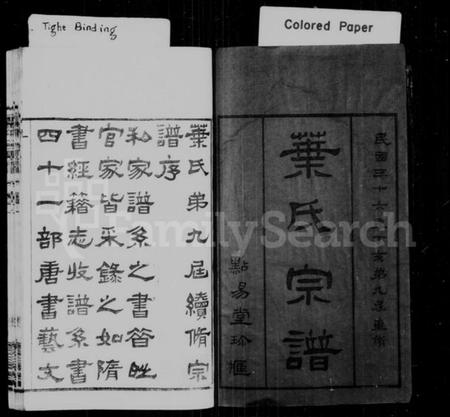 Tight Binding
Colored Paper
民國三十六
亥第九孝重脩
葉氏宗譜
點易堂珍匯
葉氏第九屆續脩宗
譜序
私家譜系之書昝
官家皆采錄之如隋
書經籍志收譜系書
四十一部唐書藝文
FamilySearch